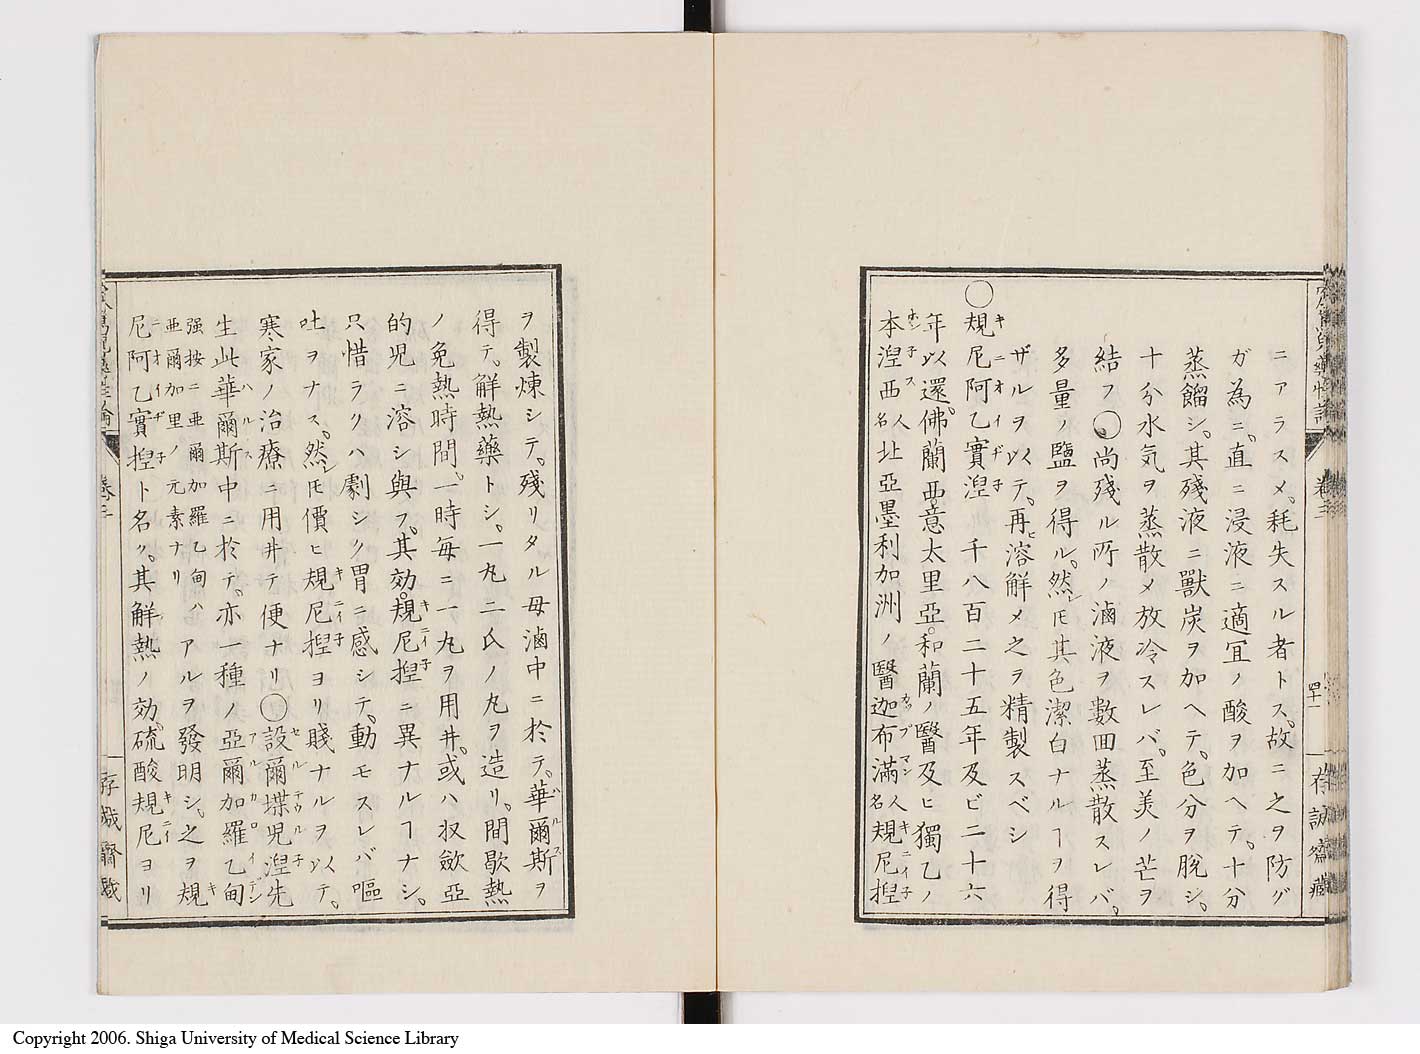 ニアラスメ。耗失スル者トス。故ニ之ヲ防グ
ガ為ニ。直ニ浸液ニ適冝ノ酸ヲ加ヘテ。十分
蒸餾シ。其殘液ニ獸炭ヲ加ヘテ。色分ヲ脫シ。
十分水気ヲ蒸散メ放冷スレバ。至美ノ芒ヲ
結フ◯。尚殘ル所ノ滷液ヲ數回蒸散スレバ。
多量ノ鹽ヲ得ル。然レ𪜈其色潔白ナルヿヲ得
ザルヲ以テ。再ヒ溶解メ之ヲ精製スベシ
◯規尼阿乙實湼 千八百二十五年及ビ二十六
年以還。佛蘭西。意太里亞。和蘭ノ醫及ヒ獨乙ノ
本湼西人名北亞墨利加洲ノ醫迦布滿人名規尼揑
ヲ製煉シテ。殘リタル母滷中ニ於テ。華爾斯ヲ
得テ。解熱藥トシ。一九二氏ノ丸ヲ造リ。間歇熱
ノ免熱時間。一時每ニ一丸ヲ用井。或ハ收斂亞
的児ニ溶シ與フ。其効。規尼揑ニ異ナルヿナシ。
只惜ラクハ劇シク胃ニ感シテ。動モスレバ嘔
吐ヲナス。然レ𪜈價ヒ規尼揑ヨリ賤ナルヲ以テ。
寒家ノ治療ニ用井テ便ナリ◯設爾堞児湼先
生此華爾斯中ニ於テ。亦一種ノ亞爾加羅乙甸
强按ニ亜爾加羅乙甸ハ
亜爾加里ノ元素ナリ
アルヲ發明シ。之ヲ規
尼阿乙實揑ト名ク。其解熱ノ効。硫酸規尼ヨリ
卷三
四十二
存誠齋藏